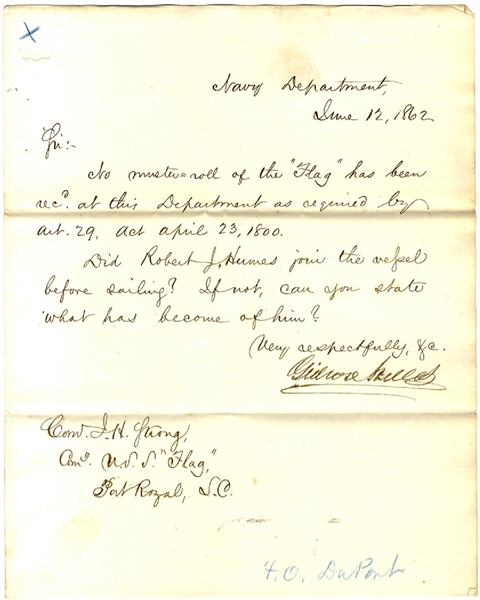 x
Navy Department,
June 12, 1862
Sir:-
No muster=roll of the "Flag" has been
recd. at this Department as required by
art. 29, Act april 23, 1800.
Did Robert J. Humes join the vessel
before sailing? If not, can you state
what has become of him?
Very respectfully, &c.
Gideon Welles
Com. J. H. Strong,
Comg. U.S.S. "Flag,"
Port Royal, S.C.
F. O. DuPont